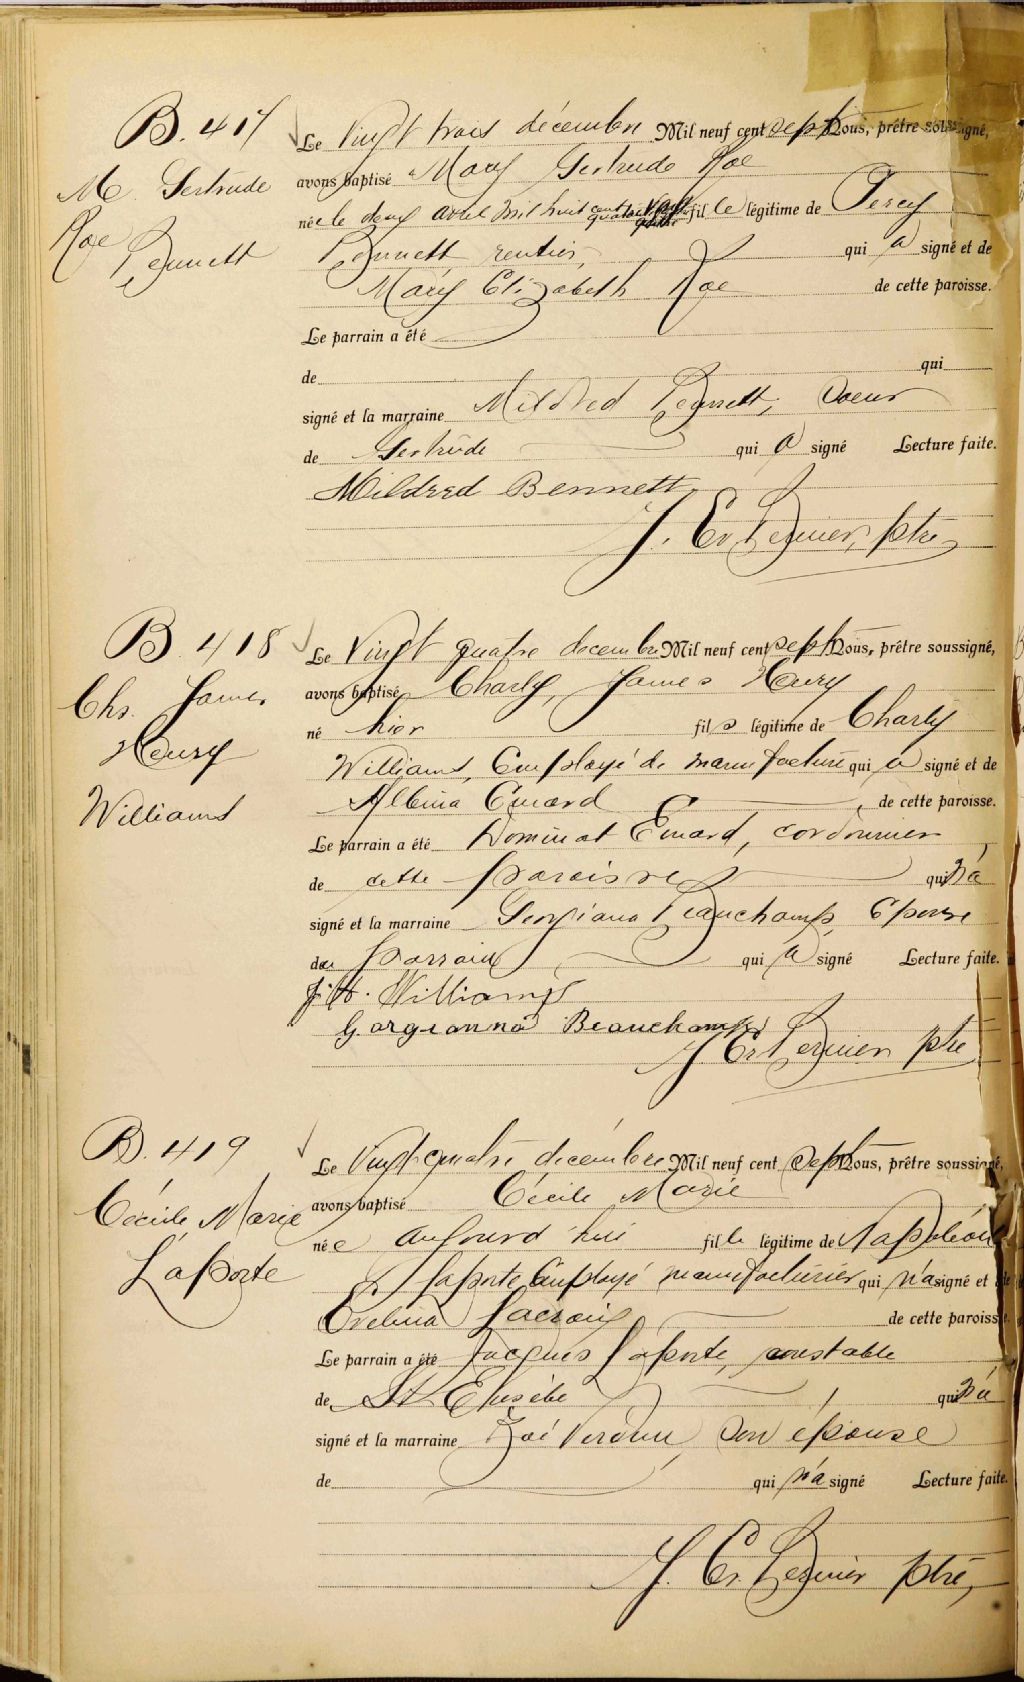 B. 417
M Gertrude
Roe
Bennett
Le Vingt trois décembre Mil neuf cent sept Nous, prêtre soussigné,
avons baptisé Mary Gertrude Roe
née le deux avril mil huit cent quatre vingt fille légitime de Percy
Bennett rentier, qui a signé et de
Mary Elizabeth Roe de cette paroisse.
Le parrain a été
de qui
signé et la marraine Mildred Bennett, Soeur
de Gertrude qui a signé Lecture faite.
Mildred Bennett
J. Er. Bernier, ptre
B. 418
Chs. James
Henry
Williams
Le Vingt quatre decembre Mil neuf cent sept Nous, prêtre soussigné,
avons baptisé Charly, James Henry
né hier fils légitime de Charly
Williams, Employé de manufacture qui a signé et de
Albina Emard de cette paroisse.
Le parrain a été Dominat Emard, cordonnier
de cette paroisse qui n'a
signé et la marraine Georgiana Beauchamp, Epouse
du parrain qui a signé Lecture faite.
J. H. Williams
Gorgeanna Beauchamps
J Er. Bernier ptre
B. 419
Cécile Marie
Laporte
Le Vingt-quatre décembre Mil neuf cent Sept Nous, prêtre soussigné,
avons baptisé Cécile Marie
née aujourd hui fille légitime de Napoléon
Laporte Employé manufacturier qui n'a signé et de
Evelina Lacroix de cette paroisse.
Le parrain a été Jacques Laporte, constable
de St Eusèbe qui n'a
signé et la marraine Zoé Verdun, Son épouse
de qui n'a signé Lecture faite.
J. Er. Bernier ptre,